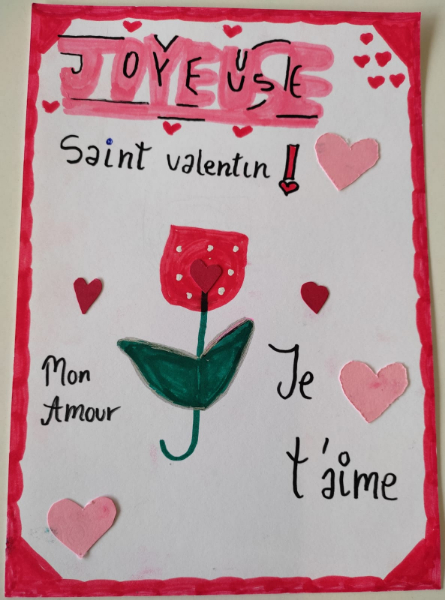 JOYEUSE
Saint valentin !
Mon
Amour
Je
t'aime